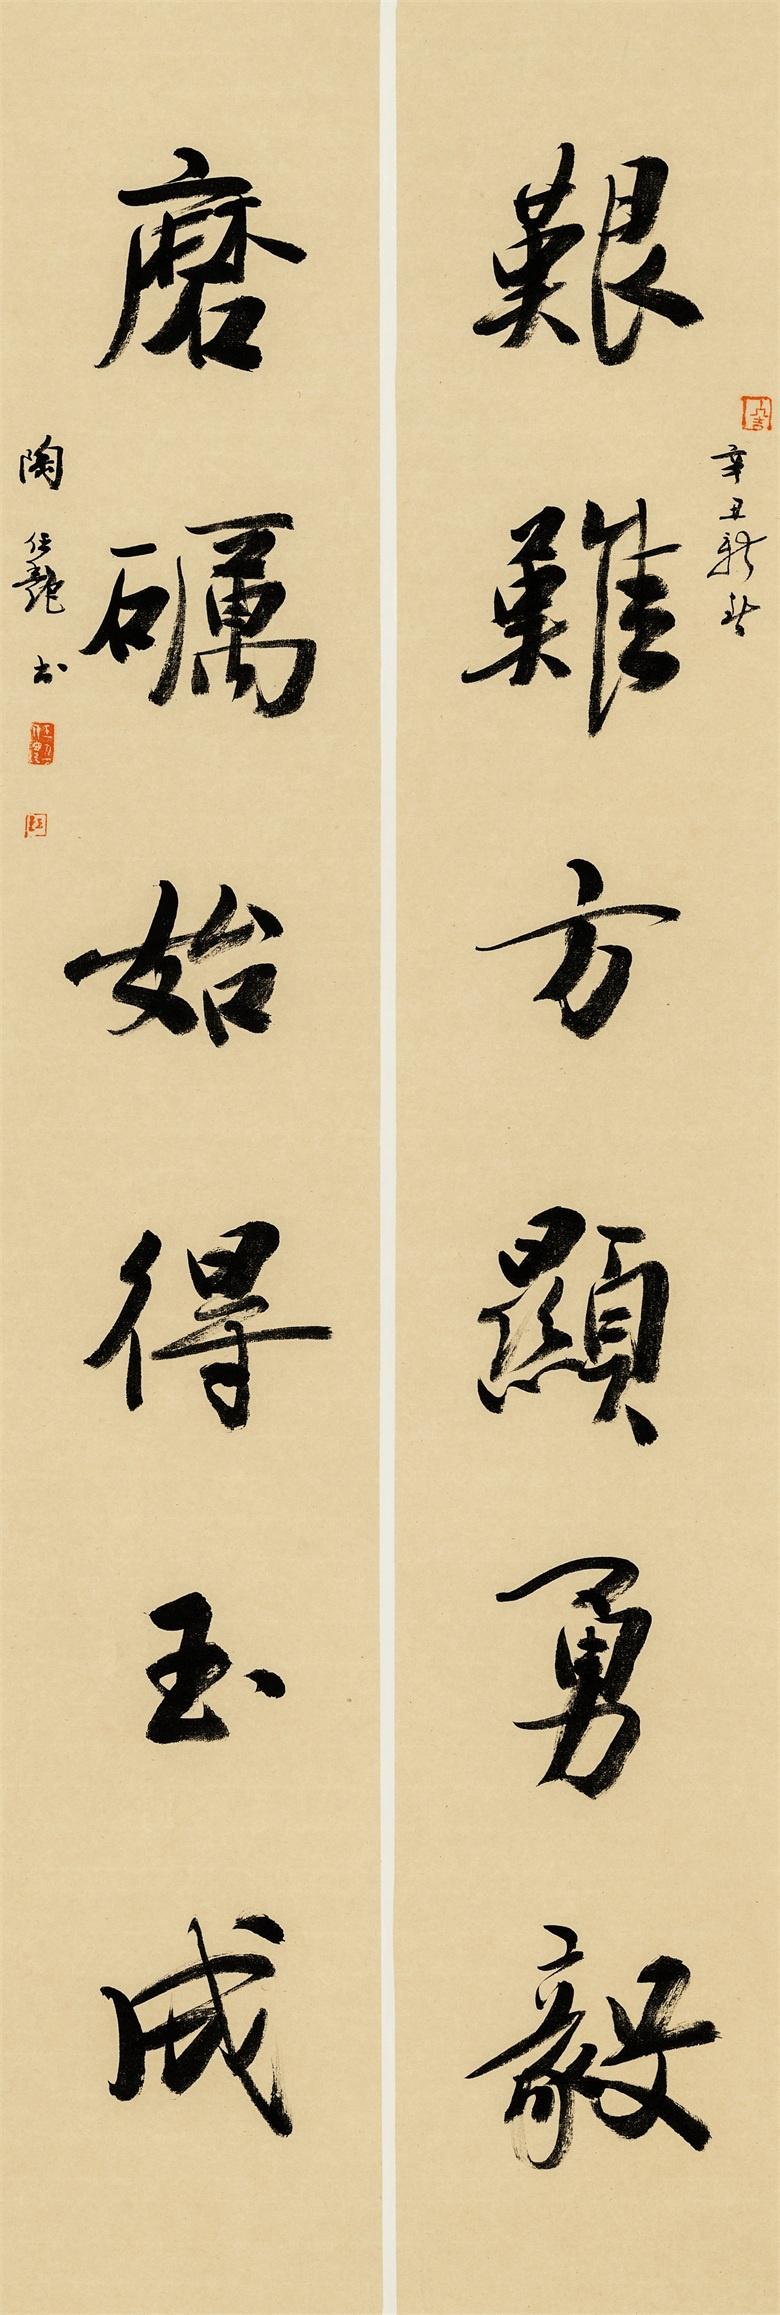 艱難方顯勇毅
辛丑新秋
磨礪始得玉成
陶 書